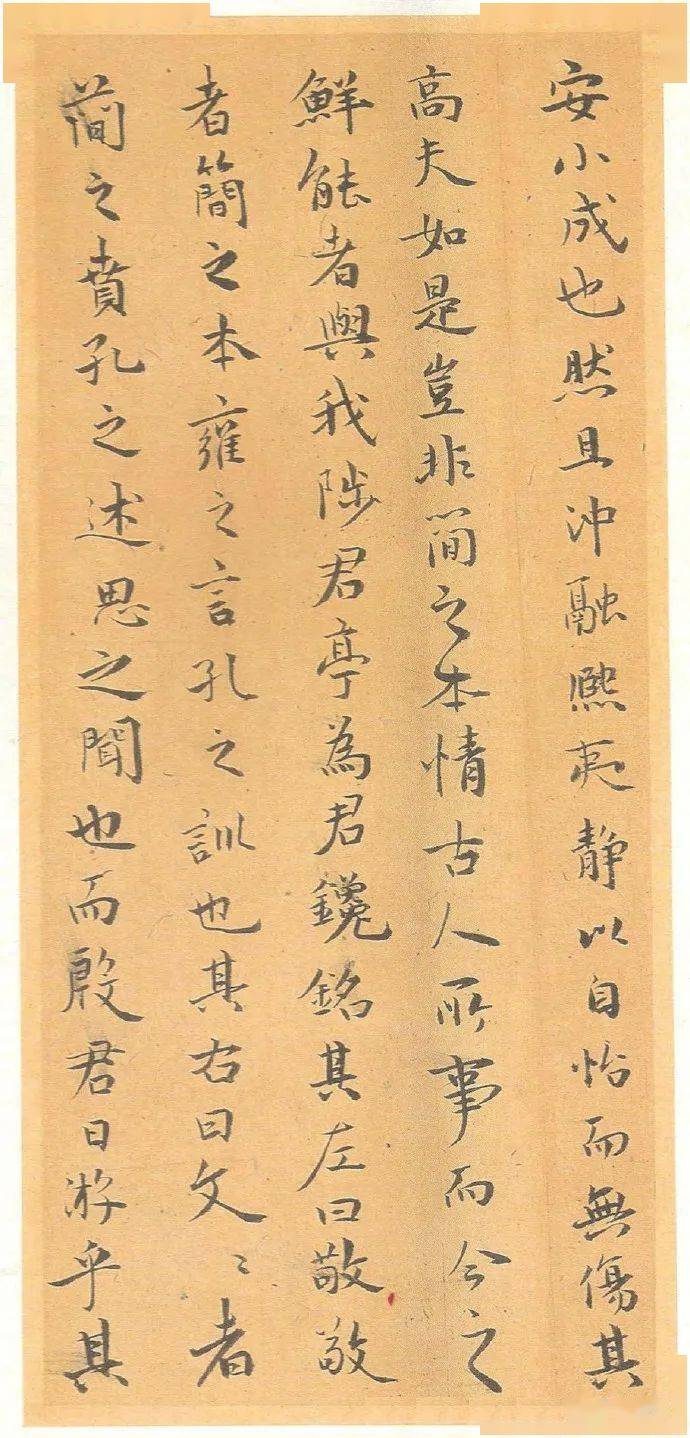 安小成也然且冲融熙夷静以自怡而無傷其
高夫如是豈非簡之本情古人所事而今之
鮮能者與我陟君亭為君鑱銘其左曰敬敬
者簡之本雍之言孔之訓也其右曰文〻者
簡之賁孔之述思之聞也而殷君日游乎其